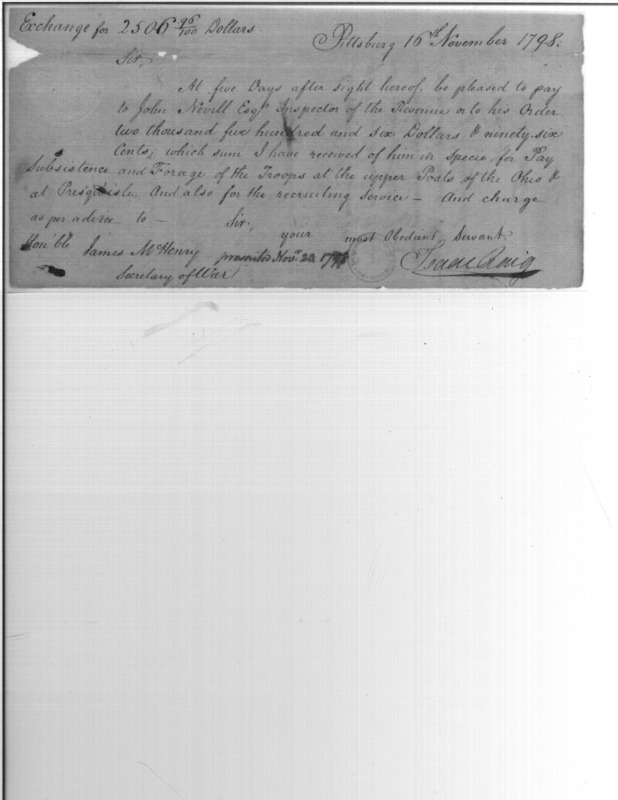 Exchange for 2506 96/100 Dollars
Pittsburg 16th November 1798.
Sir,
At five Days after sight hereof, be pleased to pay
to John Nevill Esqr. Inspector of the Revenue or to his Order
two thousand five hundred and six Dollars & ninety-six
Cents, which sum I have received of him in Specie, for Pay
Subsistence and Forage of the Troops at the upper Posts of the Ohio &
at Presqu'isle, And also for the recruiting Service — And charge
as per advice to — Sir,
your most Obedient Servant,
Hon'ble James McHenry presented Nov. 23. 1798 Isaac Craig
Secretary of War